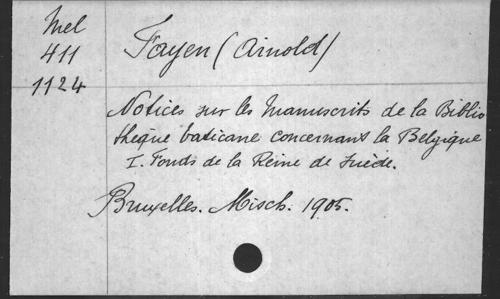 Mel
411
1124
Fayen (Arnold)
Notices sur les Manuscrits de la Biblio
thèque vaticane concernant la Belgique
I. Fonds de la Reine de Suède.
Bruxelles. Misch. 1905.